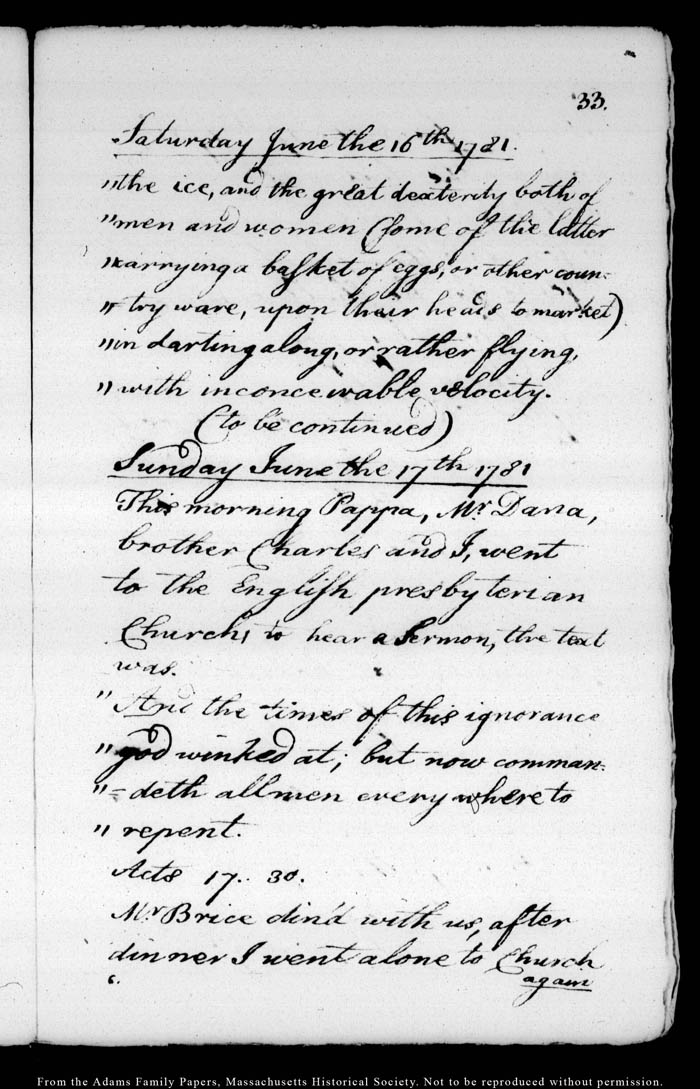 33.
Saturday June the 16th 1781.
"the ice, and the great dexterity both of
"men and women (some of the latter
"carrying a basket of eggs, or other coun=
"=try ware, upon their heads to market)
"in darting along, or rather flying,
"with inconceivable velocity.
(to be continued)
Sunday June the 17th 1781
This morning Pappa, Mr. Dana,
brother Charles and I, went
to the English presbyterian
Church, to hear a Sermon, the text
was.
"And the times of this ignorance
"god winked at; but now comman=
"=deth all men every where to
"repent.
Acts 17. 30.
Mr Brice din'd with us, after
dinner I went alone to Church
6.
again
From the Adams Family Papers, Massachusetts Historical Society. Not to be reproduced without permission.